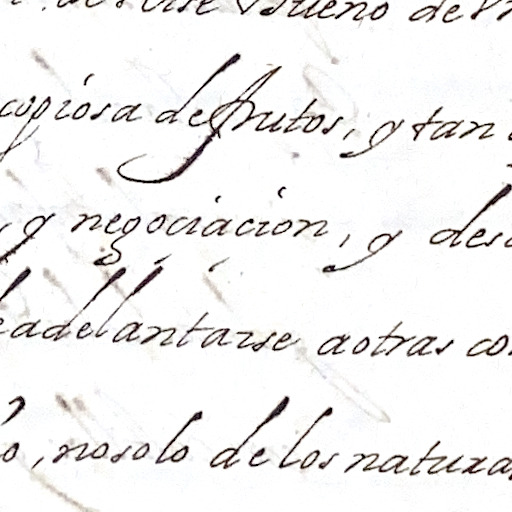 Bueno de
copiosa de frutos, y tan
, y negociacion, y des
eadelantarse aotras co
o, nosolo delos natura